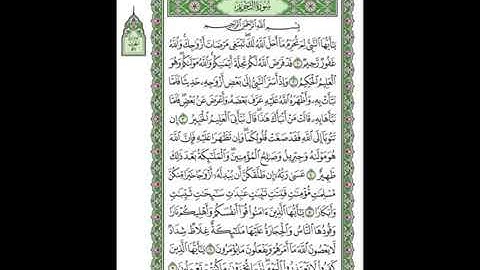 سُورَةُ التَّحْرِيمِ
بِسْمِ اللَّهِ الرَّحْمَٰنِ الرَّحِيمِ
يَٰٓأَيُّهَا ٱلنَّبِىُّ لِمَ تُحَرِّمُ مَآ أَحَلَّ ٱللَّهُ لَكَ تَبْتَغِى مَرْضَاتَ أَزْوَٰجِكَ وَٱللَّهُ
غَفُورٌ رَّحِيمٌ ١ قَدْ فَرَضَ ٱللَّهُ لَكُمْ تَحِلَّةَ أَيْمَٰنِكُمْ وَٱللَّهُ مَوْلَىٰكُمْ وَهُوَ
ٱلْعَلِيمُ ٱلْحَكِيمُ ٢ وَإِذْ أَسَرَّ ٱلنَّبِىُّ إِلَىٰ بَعْضِ أَزْوَٰجِهِۦ حَدِيثًا فَلَمَّا
نَبَّأَتْ بِهِۦ وَأَظْهَرَهُ ٱللَّهُ عَلَيْهِ عَرَّفَ بَعْضَهُۥ وَأَعْرَضَ عَنۢ بَعْضٍ فَلَمَّا
نَبَّأَهَا بِهِۦ قَالَتْ مَنْ أَنۢبَأَكَ هَٰذَا قَالَ نَبَّأَنِىَ ٱلْعَلِيمُ ٱلْخَبِيرُ ٣ إِن
تَتُوبَآ إِلَى ٱللَّهِ فَقَدْ صَغَتْ قُلُوبُكُمَا وَإِن تَظَٰهَرَا عَلَيْهِ فَإِنَّ ٱللَّهَ
هُوَ مَوْلَىٰهُ وَجِبْرِيلُ وَصَٰلِحُ ٱلْمُؤْمِنِينَ وَٱلْمَلَٰٓئِكَةُ بَعْدَ ذَٰلِكَ
ظَهِيرٌ ٤ عَسَىٰ رَبُّهُۥٓ إِن طَلَّقَكُنَّ أَن يُبْدِلَهُۥٓ أَزْوَٰجًا خَيْرًا مِّنكُنَّ
مُسْلِمَٰتٍ مُّؤْمِنَٰتٍ قَٰنِتَٰتٍ تَٰٓئِبَٰتٍ عَٰبِدَٰتٍ سَٰٓئِحَٰتٍ ثَيِّبَٰتٍ
وَأَبْكَارًا ٥ يَٰٓأَيُّهَا ٱلَّذِينَ ءَامَنُوا۟ قُوٓا۟ أَنفُسَكُمْ وَأَهْلِيكُمْ نَارًا
وَقُودُهَا ٱلنَّاسُ وَٱلْحِجَارَةُ عَلَيْهَا مَلَٰٓئِكَةٌ غِلَاظٌ شِدَادٌ
لَّا يَعْصُونَ ٱللَّهَ مَآ أَمَرَهُمْ وَيَفْعَلُونَ مَا يُؤْمَرُونَ ٦ يَٰٓأَيُّهَا ٱلَّذِينَ
كَفَرُوا۟ لَا تَعْتَذِرُوا۟ ٱلْيَوْمَ إِنَّمَا تُجْزَوْنَ مَا كُنتُمْ تَعْمَلُونَ ٧